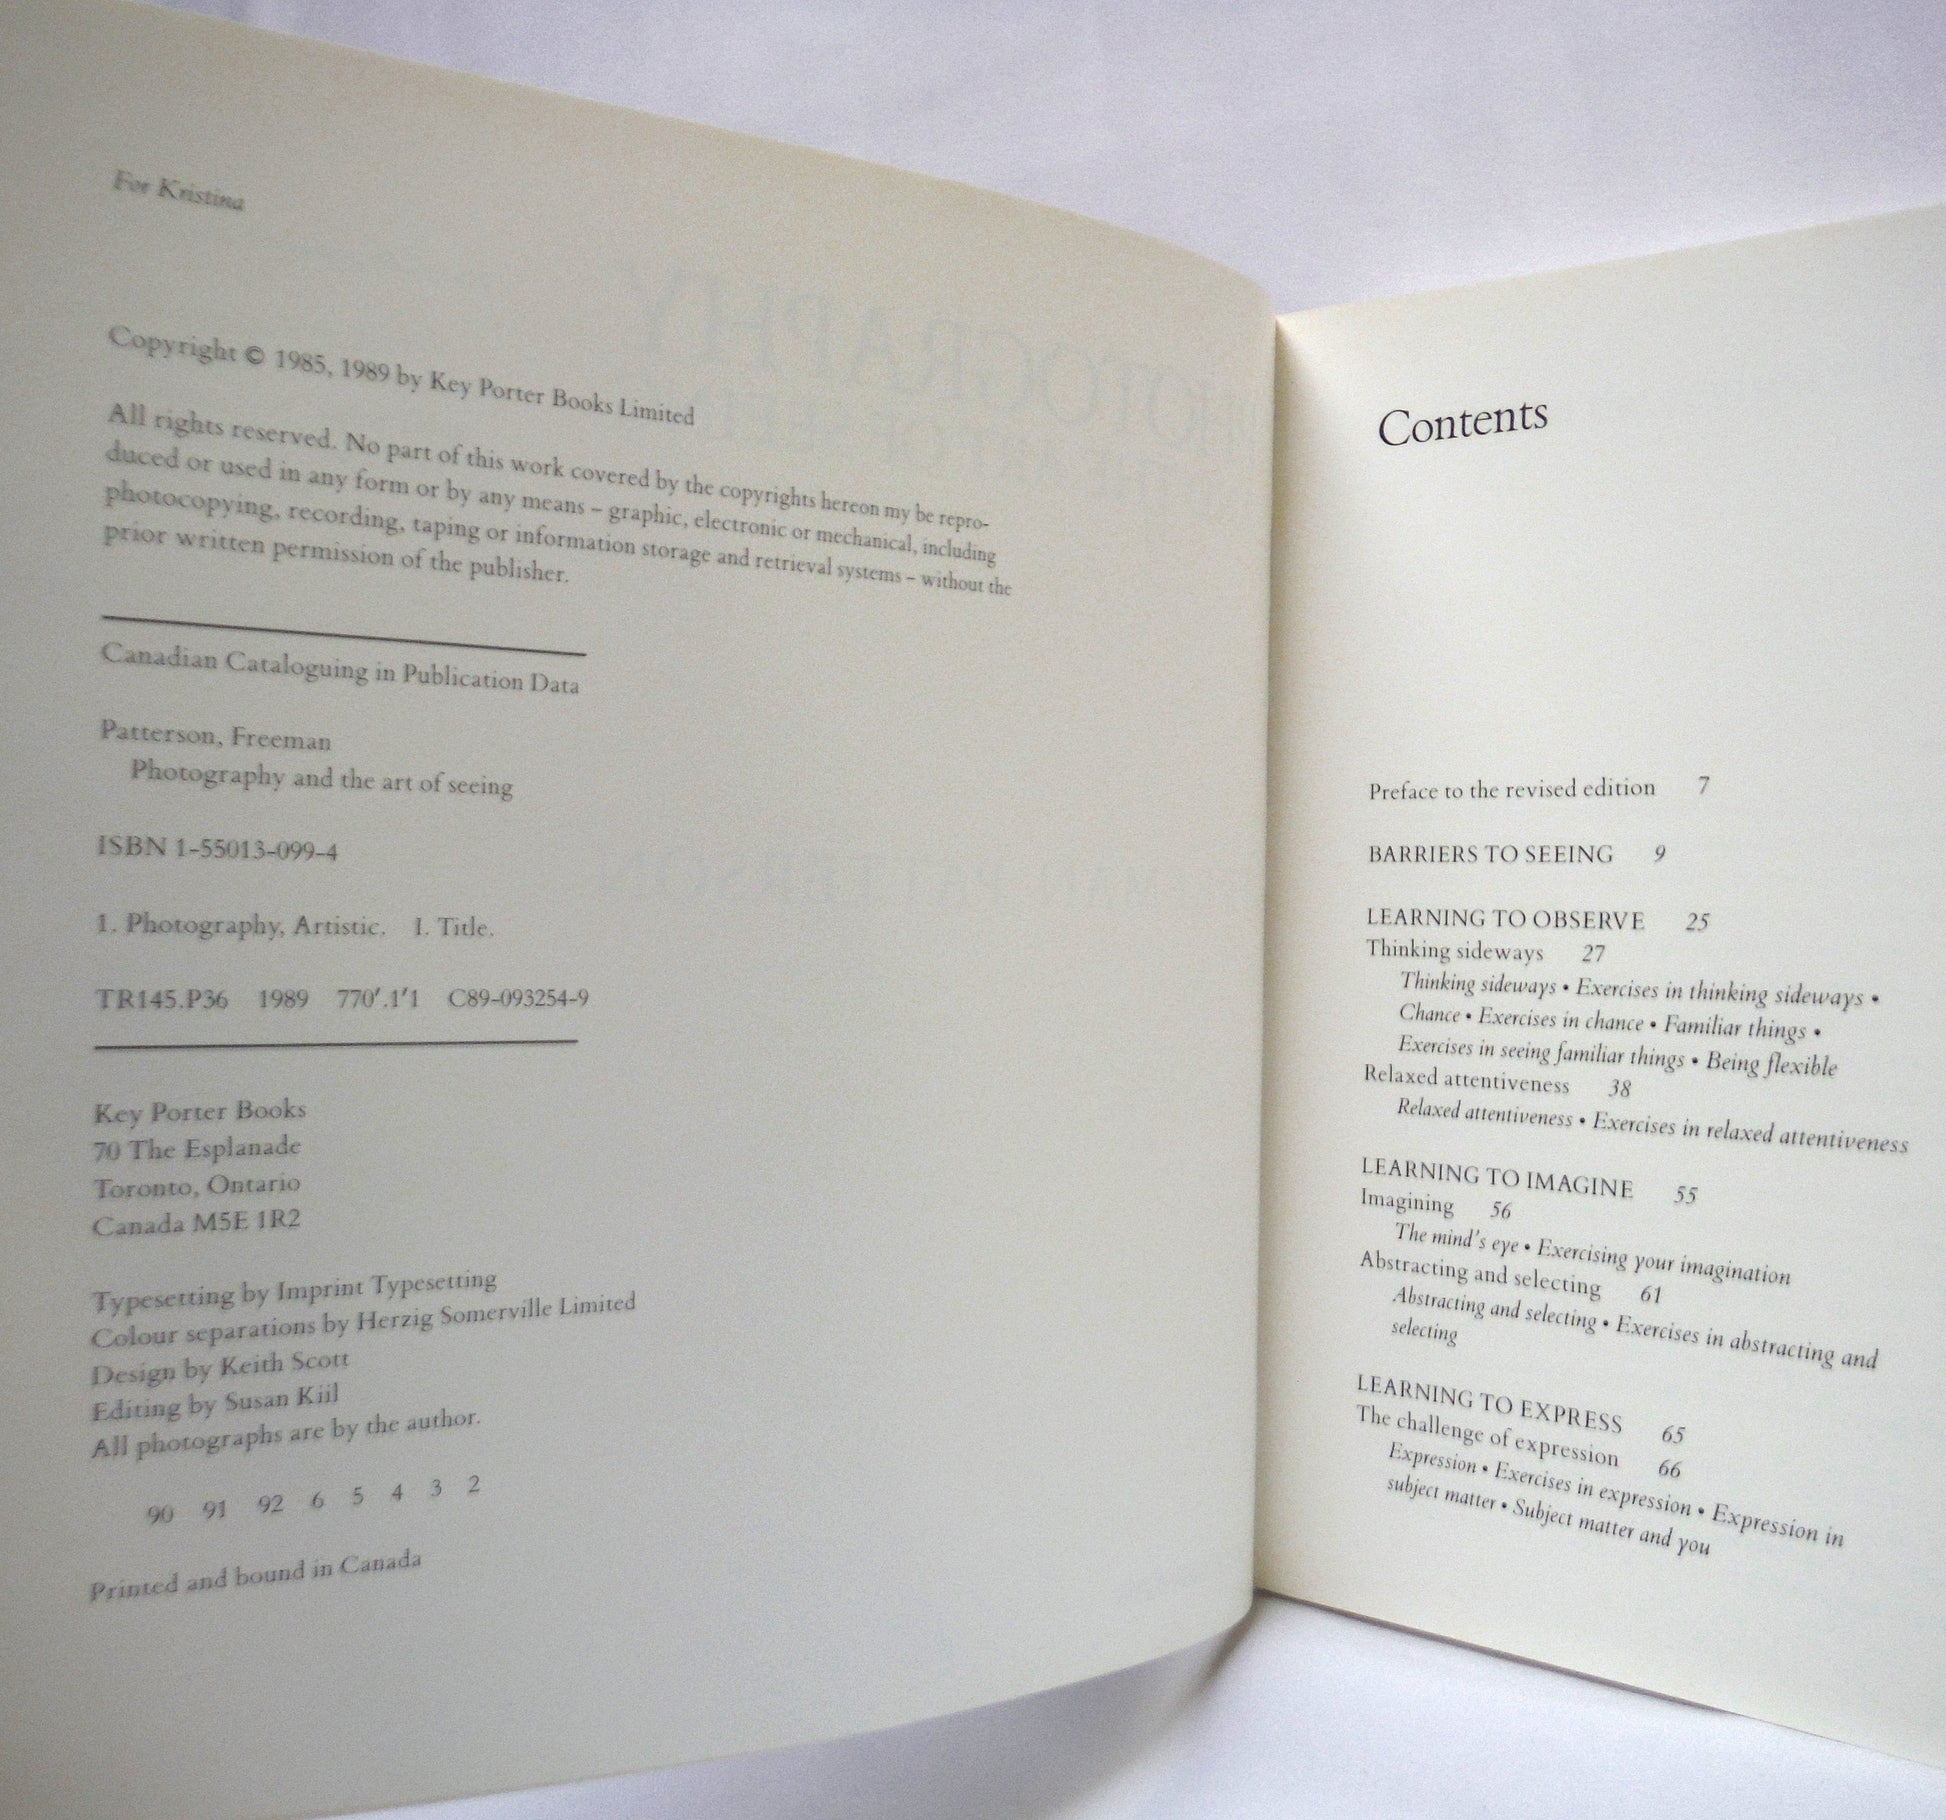 For Kristina
Copyright © 1985, 1989 by Key Porter Books Limited
All rights reserved. No part of this work covered by the copyrights hereon my be repro-
duced or used in any form or by any means – graphic, electronic or mechanical, including
photocopying, recording, taping or information storage and retrieval systems – without the
prior written permission of the publisher.
Canadian Cataloguing in Publication Data
Patterson, Freeman
Photography and the art of seeing
ISBN 1-55013-099-4
1. Photography, Artistic. I. Title.
TR145.P36 1989 770′.1′1 C89-093254-9
Key Porter Books
70 The Esplanade
Toronto, Ontario
Canada M5E 1R2
Typesetting by Imprint Typesetting
Colour separations by Herzig Somerville Limited
Design by Keith Scott
Editing by Susan Kiil
All photographs are by the author.
90 91 92 6 5 4 3 2
Printed and bound in Canada
Contents
Preface to the revised edition 7
BARRIERS TO SEEING 9
LEARNING TO OBSERVE 25
Thinking sideways 27
Thinking sideways • Exercises in thinking sideways •
Chance • Exercises in chance • Familiar things •
Exercises in seeing familiar things • Being flexible
Relaxed attentiveness 38
Relaxed attentiveness • Exercises in relaxed attentiveness
LEARNING TO IMAGINE 55
Imagining 56
The mind's eye • Exercising your imagination
Abstracting and selecting 61
Abstracting and selecting • Exercises in abstracting and
selecting
LEARNING TO EXPRESS 65
The challenge of expression 66
Expression • Exercises in expression • Expression in
subject matter • Subject matter and you